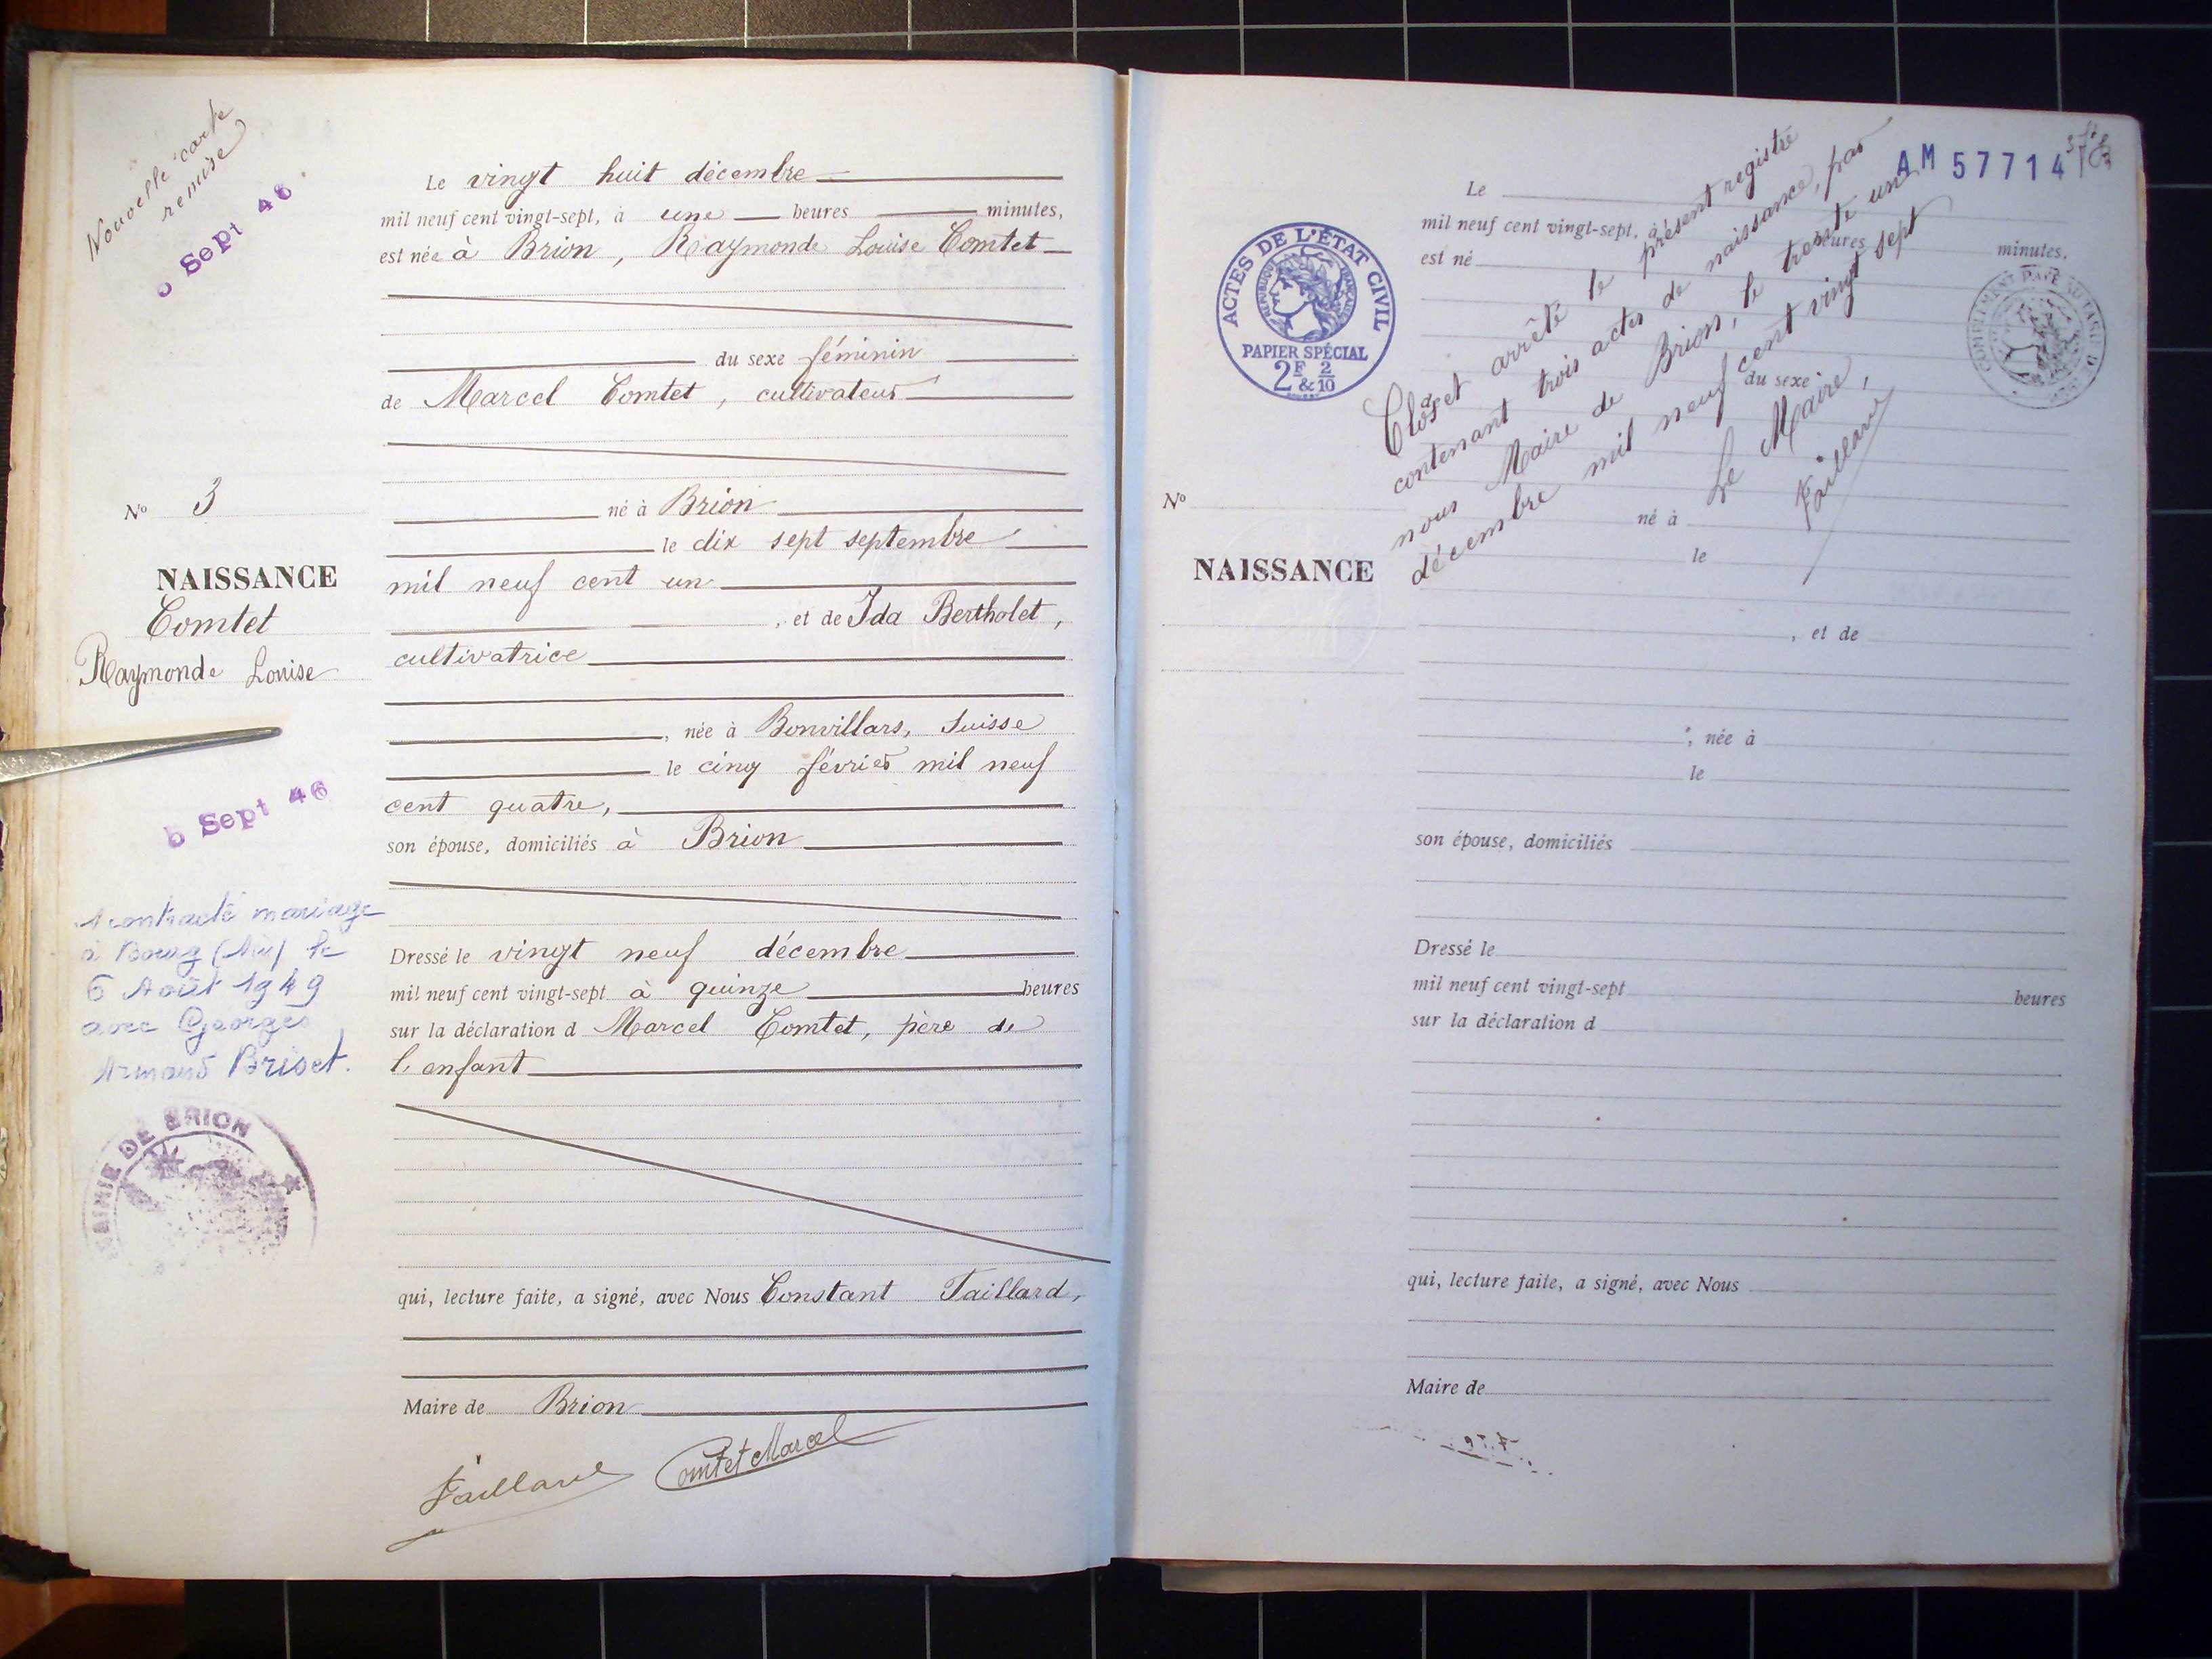 Nouvelle carte
remise
Sept 46
Le vingt huit décembre
mil neuf cent vingt-sept, à une heures minutes,
est née à Brion, Raymonde Louise Comtet
du sexe féminin
de Marcel Comtet, cultivateur
né à Brion
le dix sept septembre
mil neuf cent un
, et de Ida Bertholet,
cultivatrice
, née à Bonvillars, Suisse
le cinq février mil neuf
cent quatre,
son épouse, domiciliés à Brion
Dressé le vingt neuf décembre
mil neuf cent vingt-sept à quinze heures
sur la déclaration d Marcel Comtet, père de
l'enfant
qui, lecture faite, a signé, avec Nous Constant Taillard,
Maire de Brion
Taillard Comtet Marcel
No 3
NAISSANCE
Comtet
Raymonde Louise
Sept 46
A contracté mariage
à Bourg (Ain) le
6 Août 1949
avec Georges
Armand Briset.
MAIRIE DE BRION
AM 57714
ACTES DE L'ÉTAT CIVIL
RÉPUBLIQUE FRANÇAISE
PAPIER SPÉCIAL
2F 2
& 10
Clos et arrêté le présent registre
contenant trois actes de naissance, par
nous Maire de Brion, le trente un
décembre mil neuf cent vingt sept
Le Maire,
Taillard
Le
mil neuf cent vingt-sept, à heures minutes,
est né
du sexe
né à
le
No
NAISSANCE
, et de
, née à
le
son épouse, domiciliés
Dressé le
mil neuf cent vingt-sept heures
sur la déclaration d
qui, lecture faite, a signé, avec Nous
Maire de